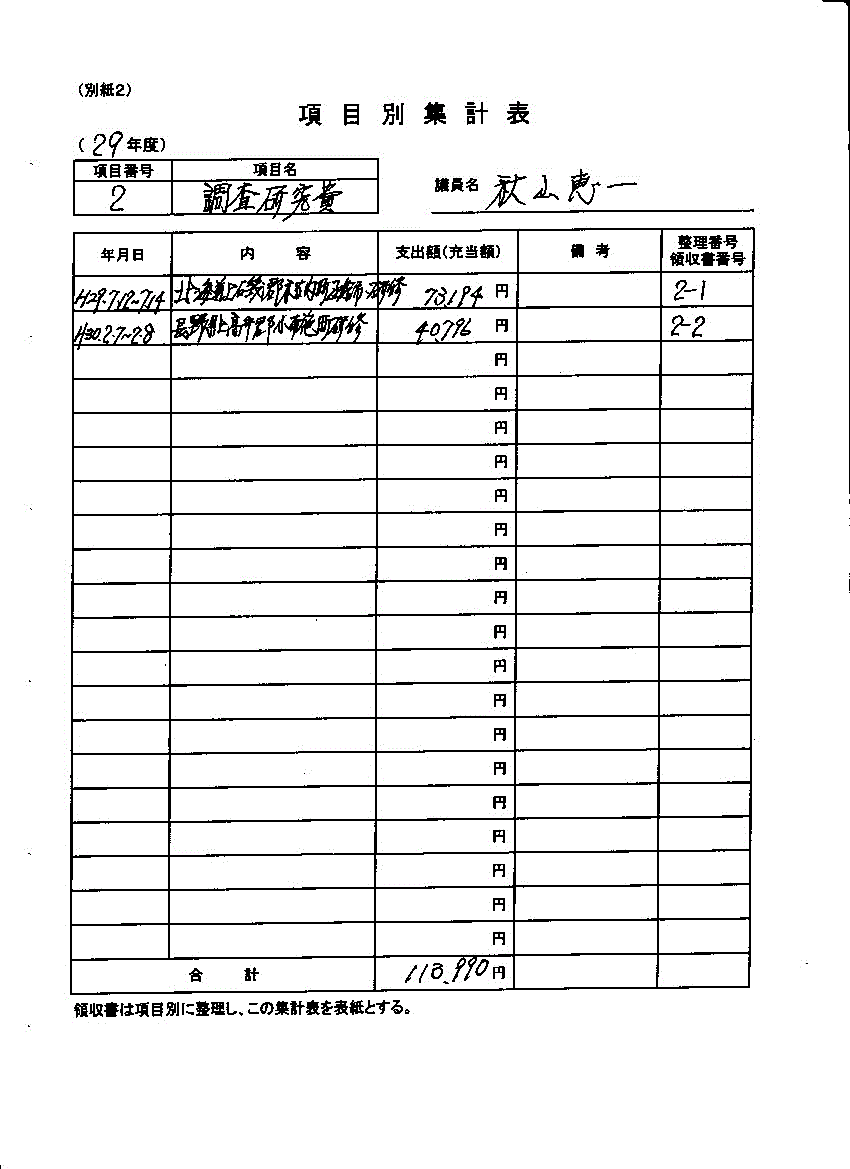 (別紙2)
項目別集計表
(29年度)
項目番号 項目名
2 調査研究費
議員名 秋山恵一
年月日 内容 支出額(充当額) 備考 整理番号 領収書番号
H29.7.12~7.14 北海道上磯郡木古内町 研修 73,194円 2-1
H30.2.7~2.8 長野県上高井郡小布施町研修 40,796円 2-2
円
円
円
円
円
円
円
円
円
円
円
円
円
円
円
円
円
円
合計 113,990円
領収書は項目別に整理し、この集計表を表紙とする。